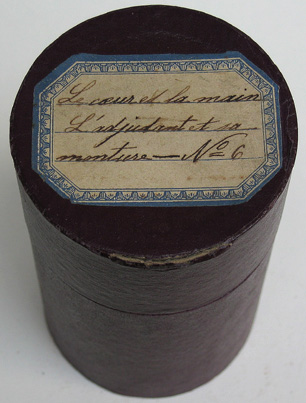 Le cœur et la main
L'adjudant et sa
monture — No 6